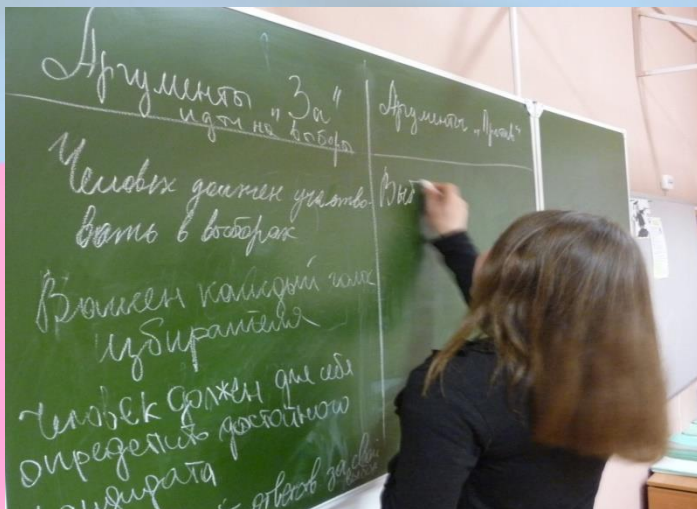 Аргументы „За"
идти на выборы
Человек должен участво-
вать в выборах
Важен каждый голос
избирателя
Человек должен для себя
определить достойного
кандидата
ответств за свой
Аргументы „Против"
Выб